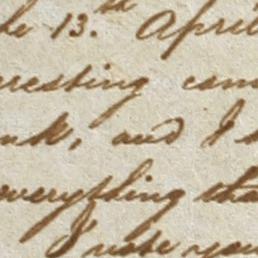 he 13.th April
eresting com
nk, and I s
everything tha
I wish you